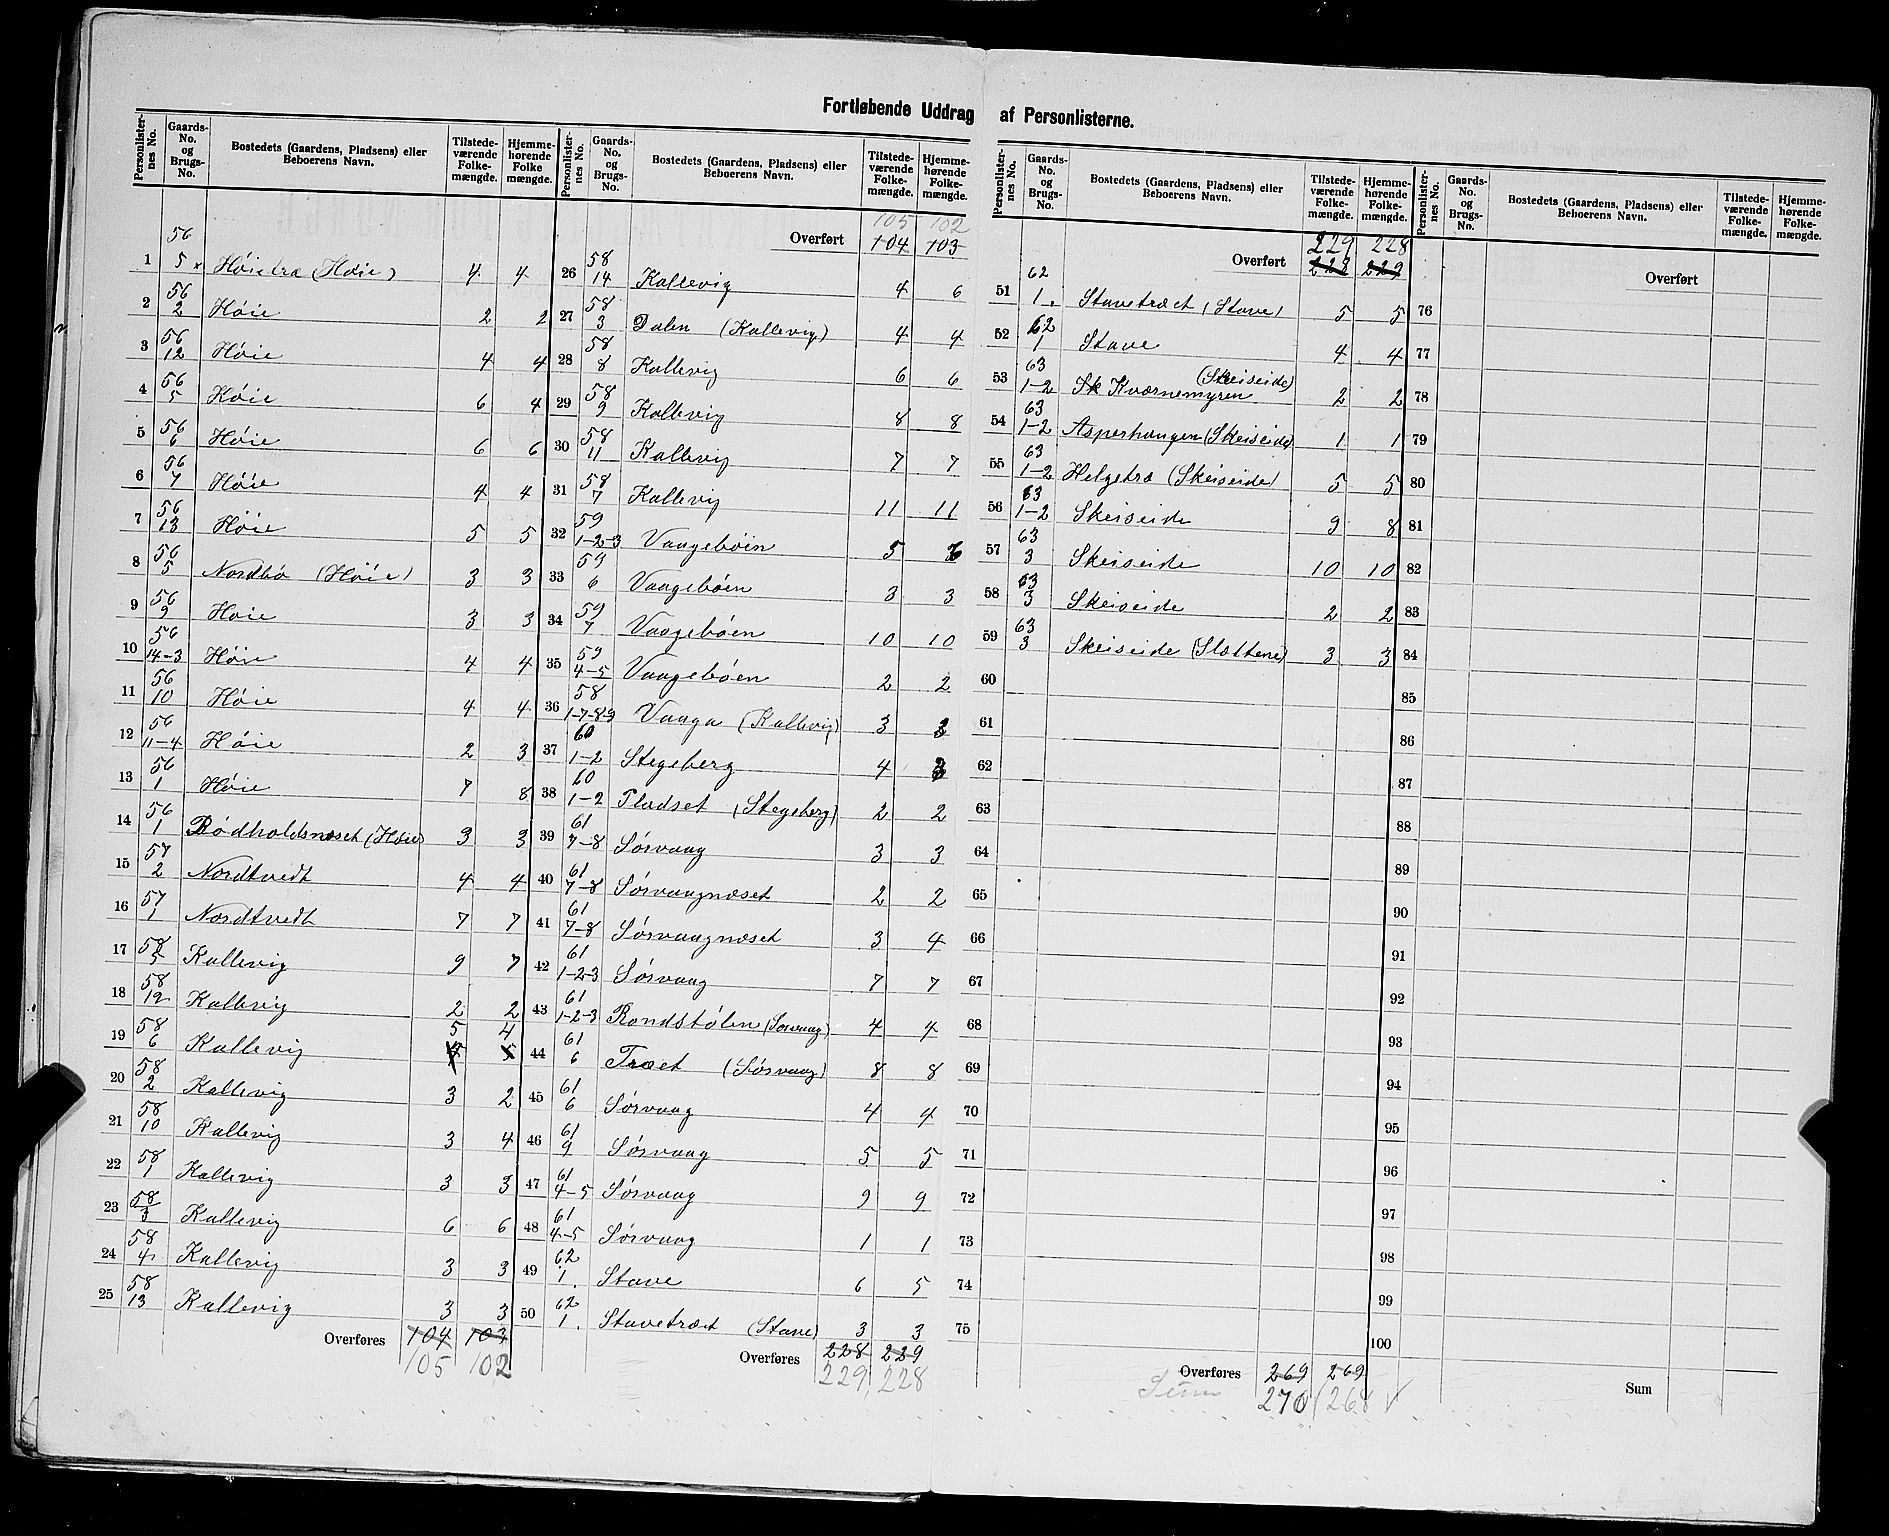 Fortløbende Uddrag af Personlisterne.
Personlister-nes No. | Gaards-No. og Brugs-No. | Bostedets (Gaardens, Pladsens) eller Beboerens Navn. | Tilstede-værende Folke-mængde. | Hjemme-hørende Folke mængde.
1 56 5 Høietræ (Høie) 4 4
2 56 2 Høie 2 2
3 56 12 Høie 4 4
4 56 5 Høie 6 4
5 56 6 Høie 6 6
6 56 7 Høie 4 4
7 56 13 Høie 5 5
8 56 5 Nordbø (Høie) 3 3
9 56 9 Høie 3 3
10 56 14-3 Høie 4 4
11 56 10 Høie 4 4
12 56 11-4 Høie 2 3
13 56 1 Høie 7 8
14 56 1 Rødholdsnæset (Høie) 3 3
15 57 2 Nordtvedt 4 4
16 57 1 Nordtvedt 7 7
17 58 5 Kallevig 9 7
18 58 12 Kallevig 2 2
19 58 6 Kallevig 5 4
20 58 2 Kallevig 3 2
21 58 10 Kallevig 3 4
22 58 1 Kallevig 3 3
23 58 3 Kallevig 6 6
24 58 4 Kallevig 3 3
25 58 13 Kallevig 3 3
Overføres 104 103
105 102
Personlister-nes No. | Gaards-No. og Brugs-No. | Bostedets (Gaardens, Pladsens) eller Beboerens Navn. | Tilstede-værende Folke-mængde. | Hjemme-hørende Folke-mængde.
105 102
Overført 104 103
26 58 14 Kallevig 4 6
27 58 3 Dalen (Kallevig) 4 4
28 58 8 Kallevig 6 6
29 58 9 Kallevig 8 8
30 58 11 Kallevig 7 7
31 58 7 Kallevig 11 11
32 59 1-2-3 Vaagebøen 5 6
33 59 6 Vaagebøen 3 3
34 59 7 Vaagebøen 10 10
35 59 4-5 Vaagebøen 2 2
36 58 1-7-8-9 Vaaga (Kallevig) 3 3
37 60 1-2 Stegeberg 4 3
38 60 1-2 Pladset (Stegeberg) 2 2
39 61 7-8 Sørvaag 3 3
40 61 7-8 Sørvaagnæset 2 2
41 61 7-8 Sørvaagnæset 3 4
42 61 1-2-3 Sørvaag 7 7
43 61 1-2-3 Rondstølen (Sørvaag) 4 4
44 61 6 Træet (Sørvaag) 8 8
45 61 6 Sørvaag 4 4
46 61 9 Sørvaag 5 5
47 61 4-5 Sørvaag 9 9
48 61 4-5 Sørvaag 1 1
49 62 1. Stave 6 5
50 62 1. Stavetræet (Stave) 3 3
Overføres 228 229
229 228
Personlister-nes No. | Gaards-No. og Brugs-No. | Bostedets (Gaardens, Pladsens) eller Beboerens Navn. | Tilstede-værende Folke-mængde. | Hjemme-hørende Folke-mængde.
229 228
Overført 228 229
51 62 1. Stavetræet (Stave) 5 5
52 62 1 Stave 4 4
53 63 1-2 Sk Kværnemyren (Skeiseide) 2 2
54 63 1-2 Asperhaugen (Skeiseide) 1 1
55 63 1-2 Helgetræ (Skeiseide) 5 5
56 63 1-2 Skeiseide 9 8
57 63 3 Skeiseide 10 10
58 63 3 Skeiseide 2 2
59 63 3 Skeiseide (Slættene) 3 3
60
61
62
63
64
65
66
67
68
69
70
71
72
73
74
75
Overføres 269 269
Sum 270 268 ✓
Personlister-nes No. | Gaards-No. og Brugs-No. | Bostedets (Gaardens, Pladsens) eller Beboerens Navn. | Tilstede-værende Folke-mængde. | Hjemme-hørende Folke-mængde.
Overført
76
77
78
79
80
81
82
83
84
85
86
87
88
89
90
91
92
93
94
95
96
97
98
99
100
Sum